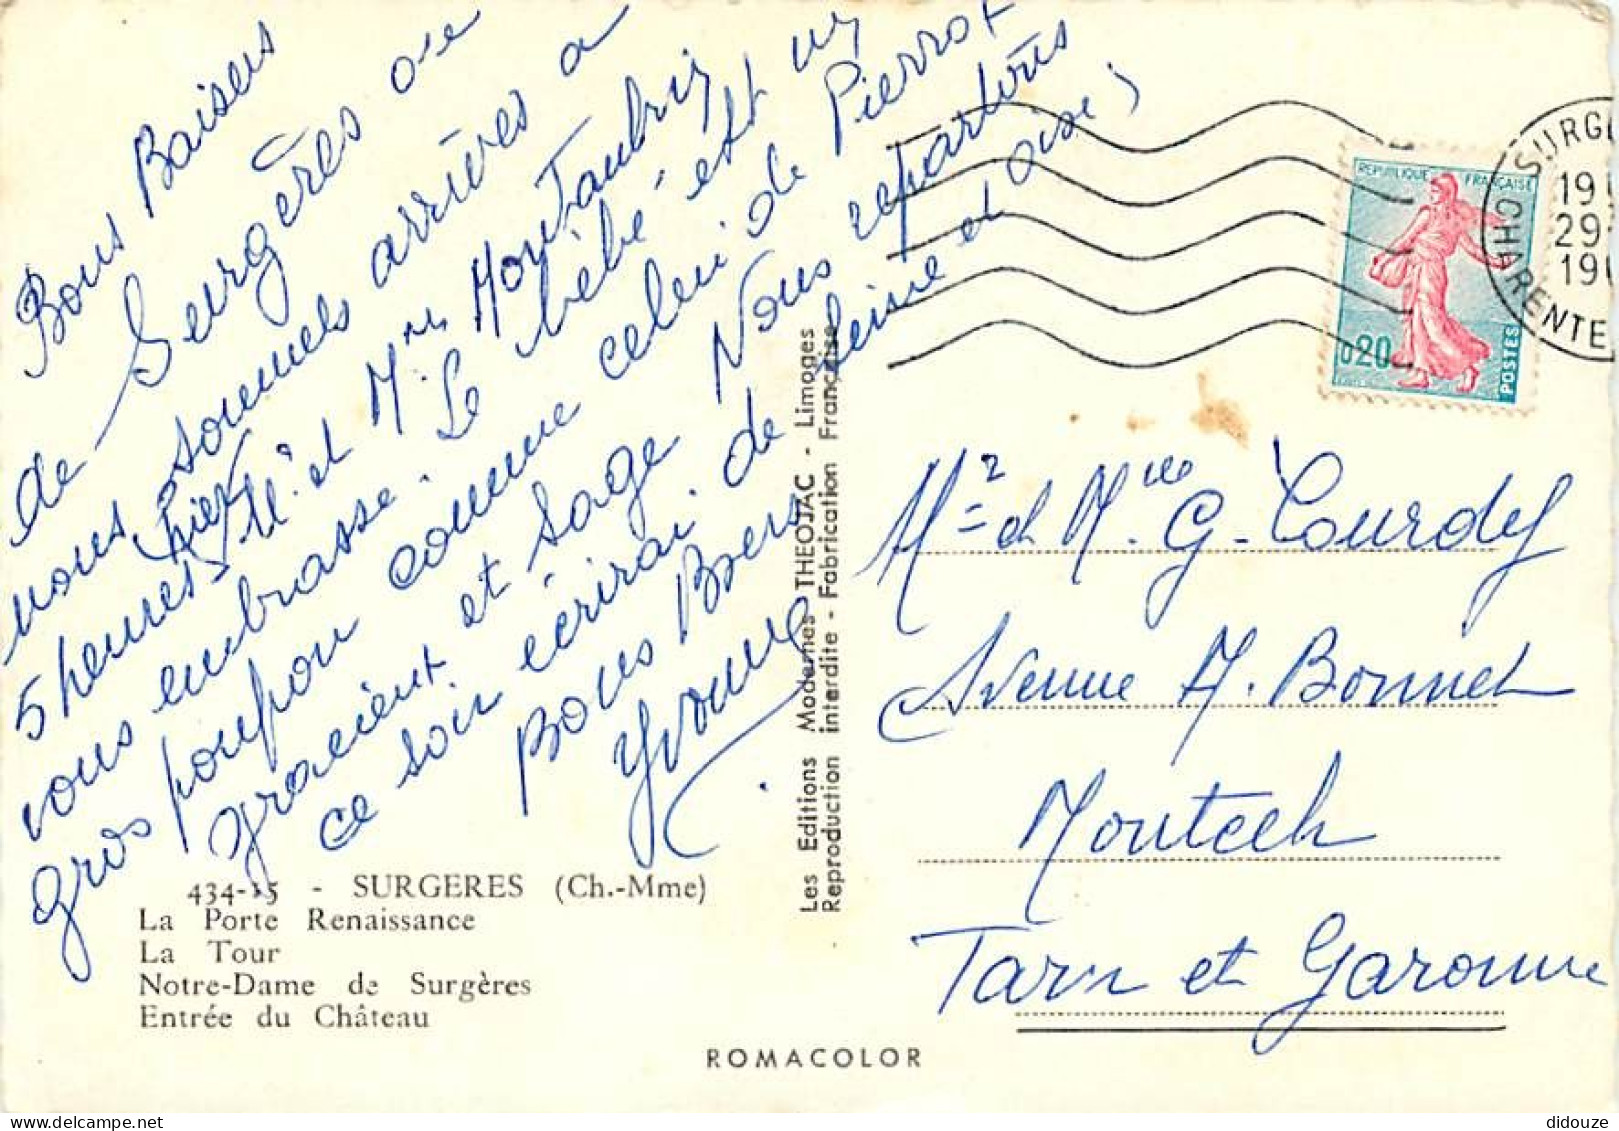 Bons Baisers
de Surgères où
nous sommes arrivés à
hier
5 heures Mr et Mme Montaubrig
vous embrasse. Le bébé est un
gros poupon comme celui de Pierrot
gracient et sage Nous repartons
ce soir écrirai de Seine et Oise ;
Bons Bsers
Yvonne
434-15 - SURGERES (Ch.-Mme)
La Porte Renaissance
La Tour
Notre-Dame de Surgères
Entrée du Château
ROMACOLOR
Les Editions Modernes THEOJAC - Limoges
Reproduction interdite - Fabrication Française
REPUBLIQUE FRANÇAISE
0,20
POSTES
SURGE
CHARENTE
19
29
19
Mr et Mme G. Courdy
Avenue A. Bonnet
Montech
Tarn et Garonne
didouze